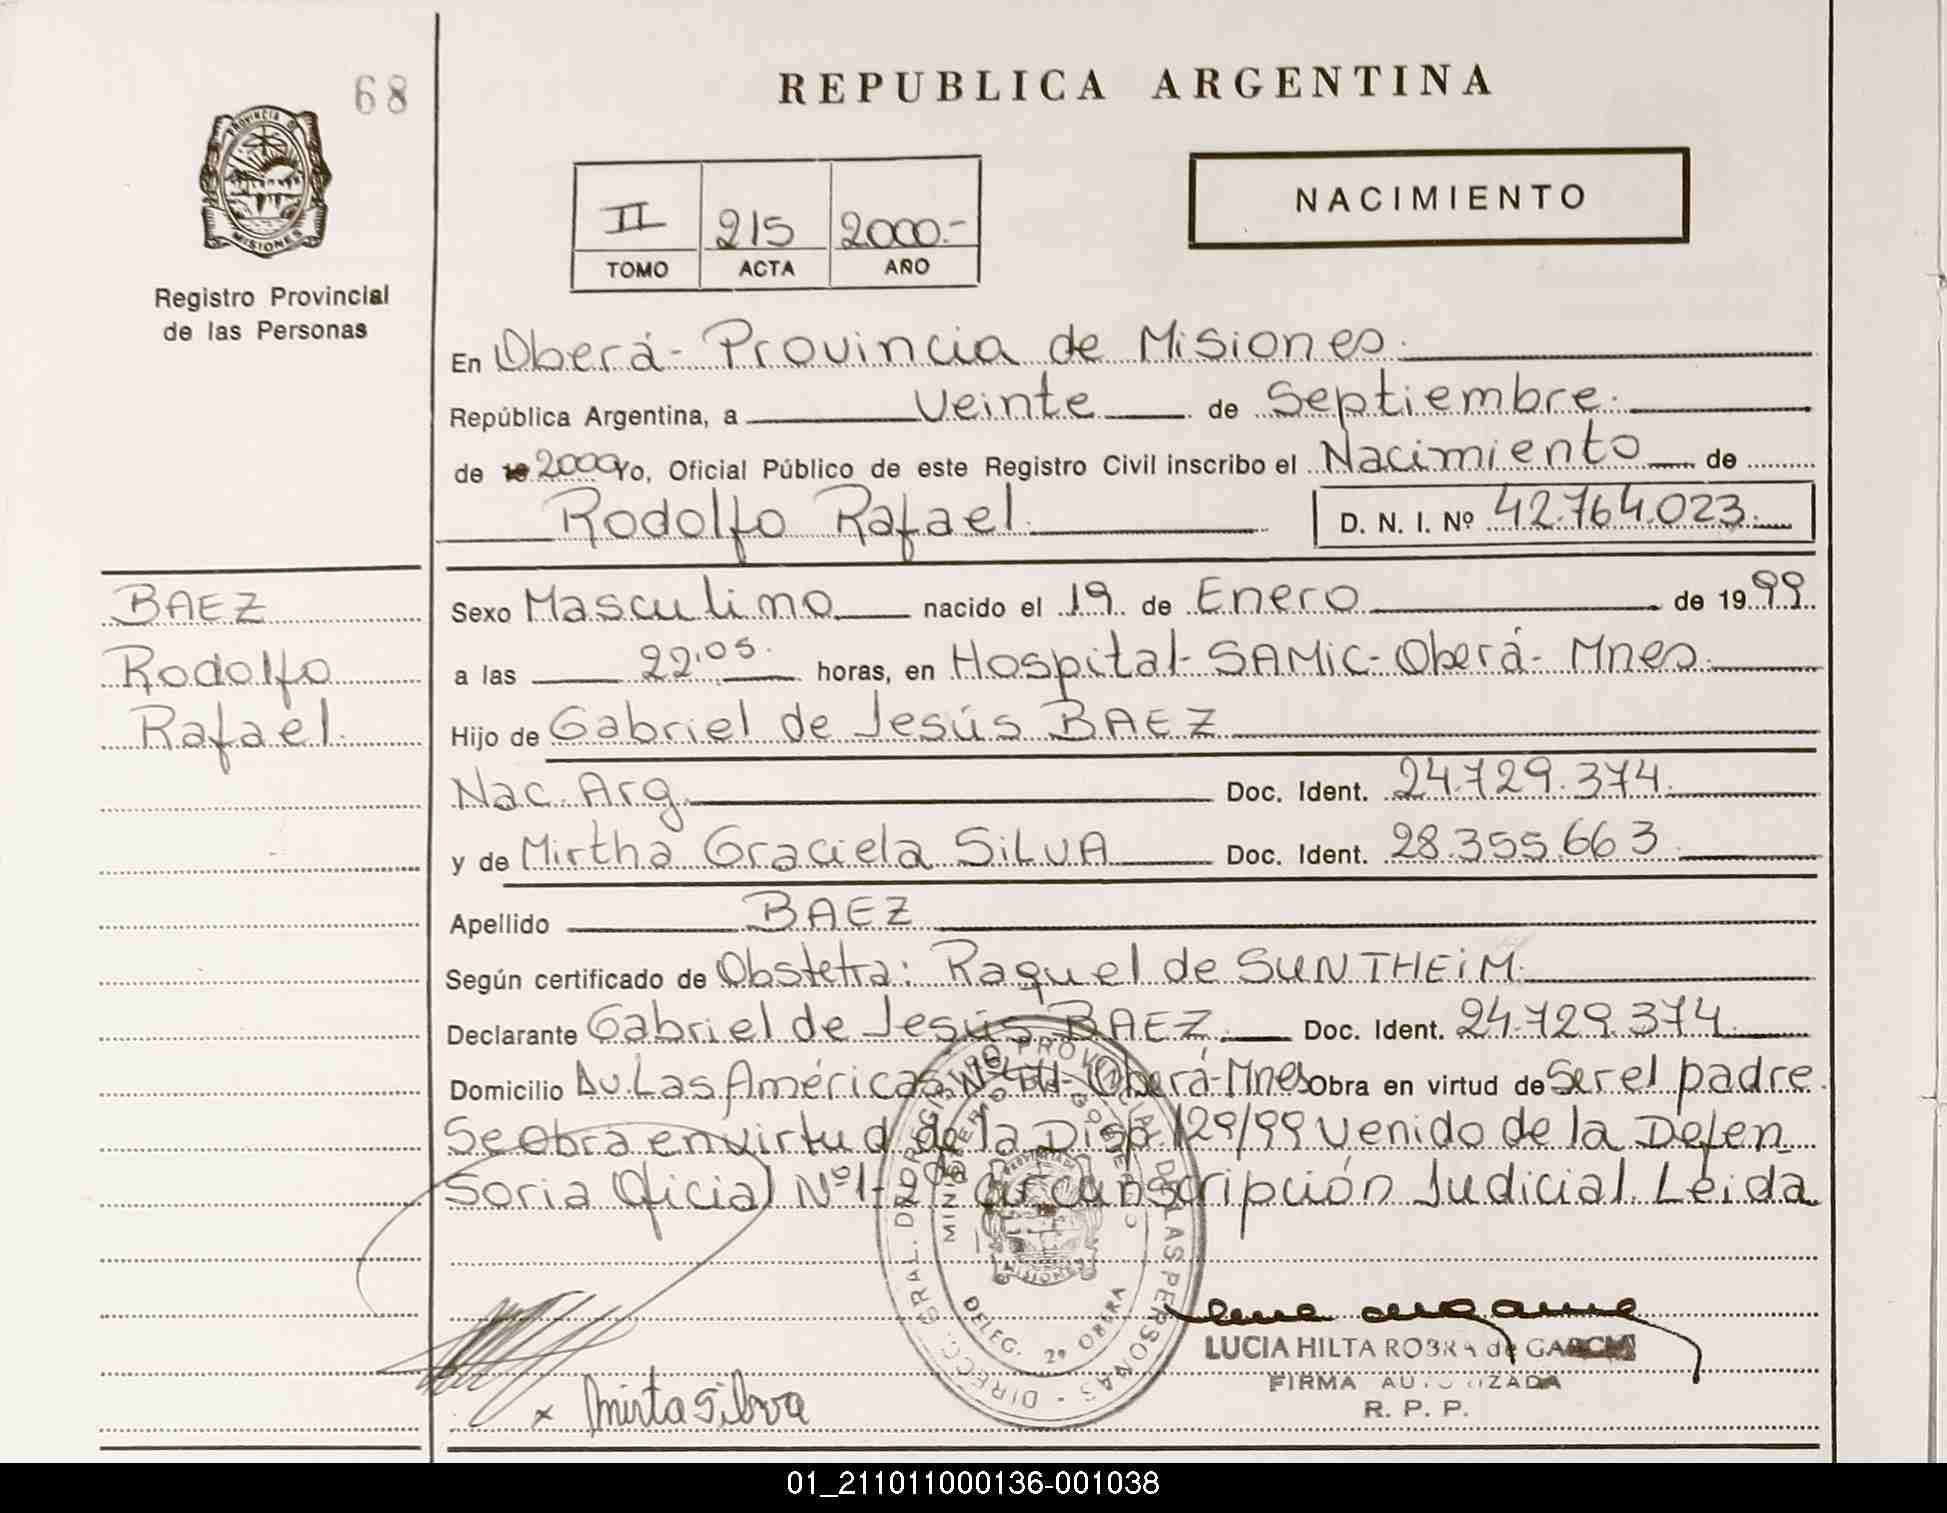 68
REPUBLICA ARGENTINA
PROVINCIA DE
MISIONES
Registro Provincial
de las Personas
NACIMIENTO
II 215 2000.-
TOMO ACTA AÑO
En Oberá - Provincia de Misiones.
República Argentina, a Veinte de Septiembre.
de 19 2000 Yo, Oficial Público de este Registro Civil inscribo el Nacimiento de
Rodolfo Rafael. D. N. I. Nº 42.764.023.
BAEZ
Rodolfo
Rafael.
Sexo Masculino nacido el 19 de Enero de 1999
a las 22,05. horas, en Hospital - SAMiC - Oberá - Mnes.
Hijo de Gabriel de Jesús BAEZ
Nac. Arg. Doc. Ident. 24.729.374.
y de Mirtha Graciela SiLVA Doc. Ident. 28.355.663.
Apellido BAEZ
Según certificado de Obstetra: Raquel de SUNTHEiM.
Declarante Gabriel de Jesús BAEZ. Doc. Ident. 24.729.374
Domicilio Av. Las Américas Oberá - Mnes Obra en virtud de Ser el padre.
Se obra en virtud de la Disp. 129/99 venido de la Defen
soria Oficial Nº1 - 2da circunscripción Judicial. Leida
DIRECC. GRAL. DEL REGISTRO PROVINCIAL DE LAS PERSONAS
MINISTERIO DE GOBIERNO
MISIONES
DELEG. 2º OBERA
LUCIA HILTA ROBRA de GARCIA
FIRMA AUTORIZADA
R. P. P.
x Mirta Silva
01_211011000136-001038